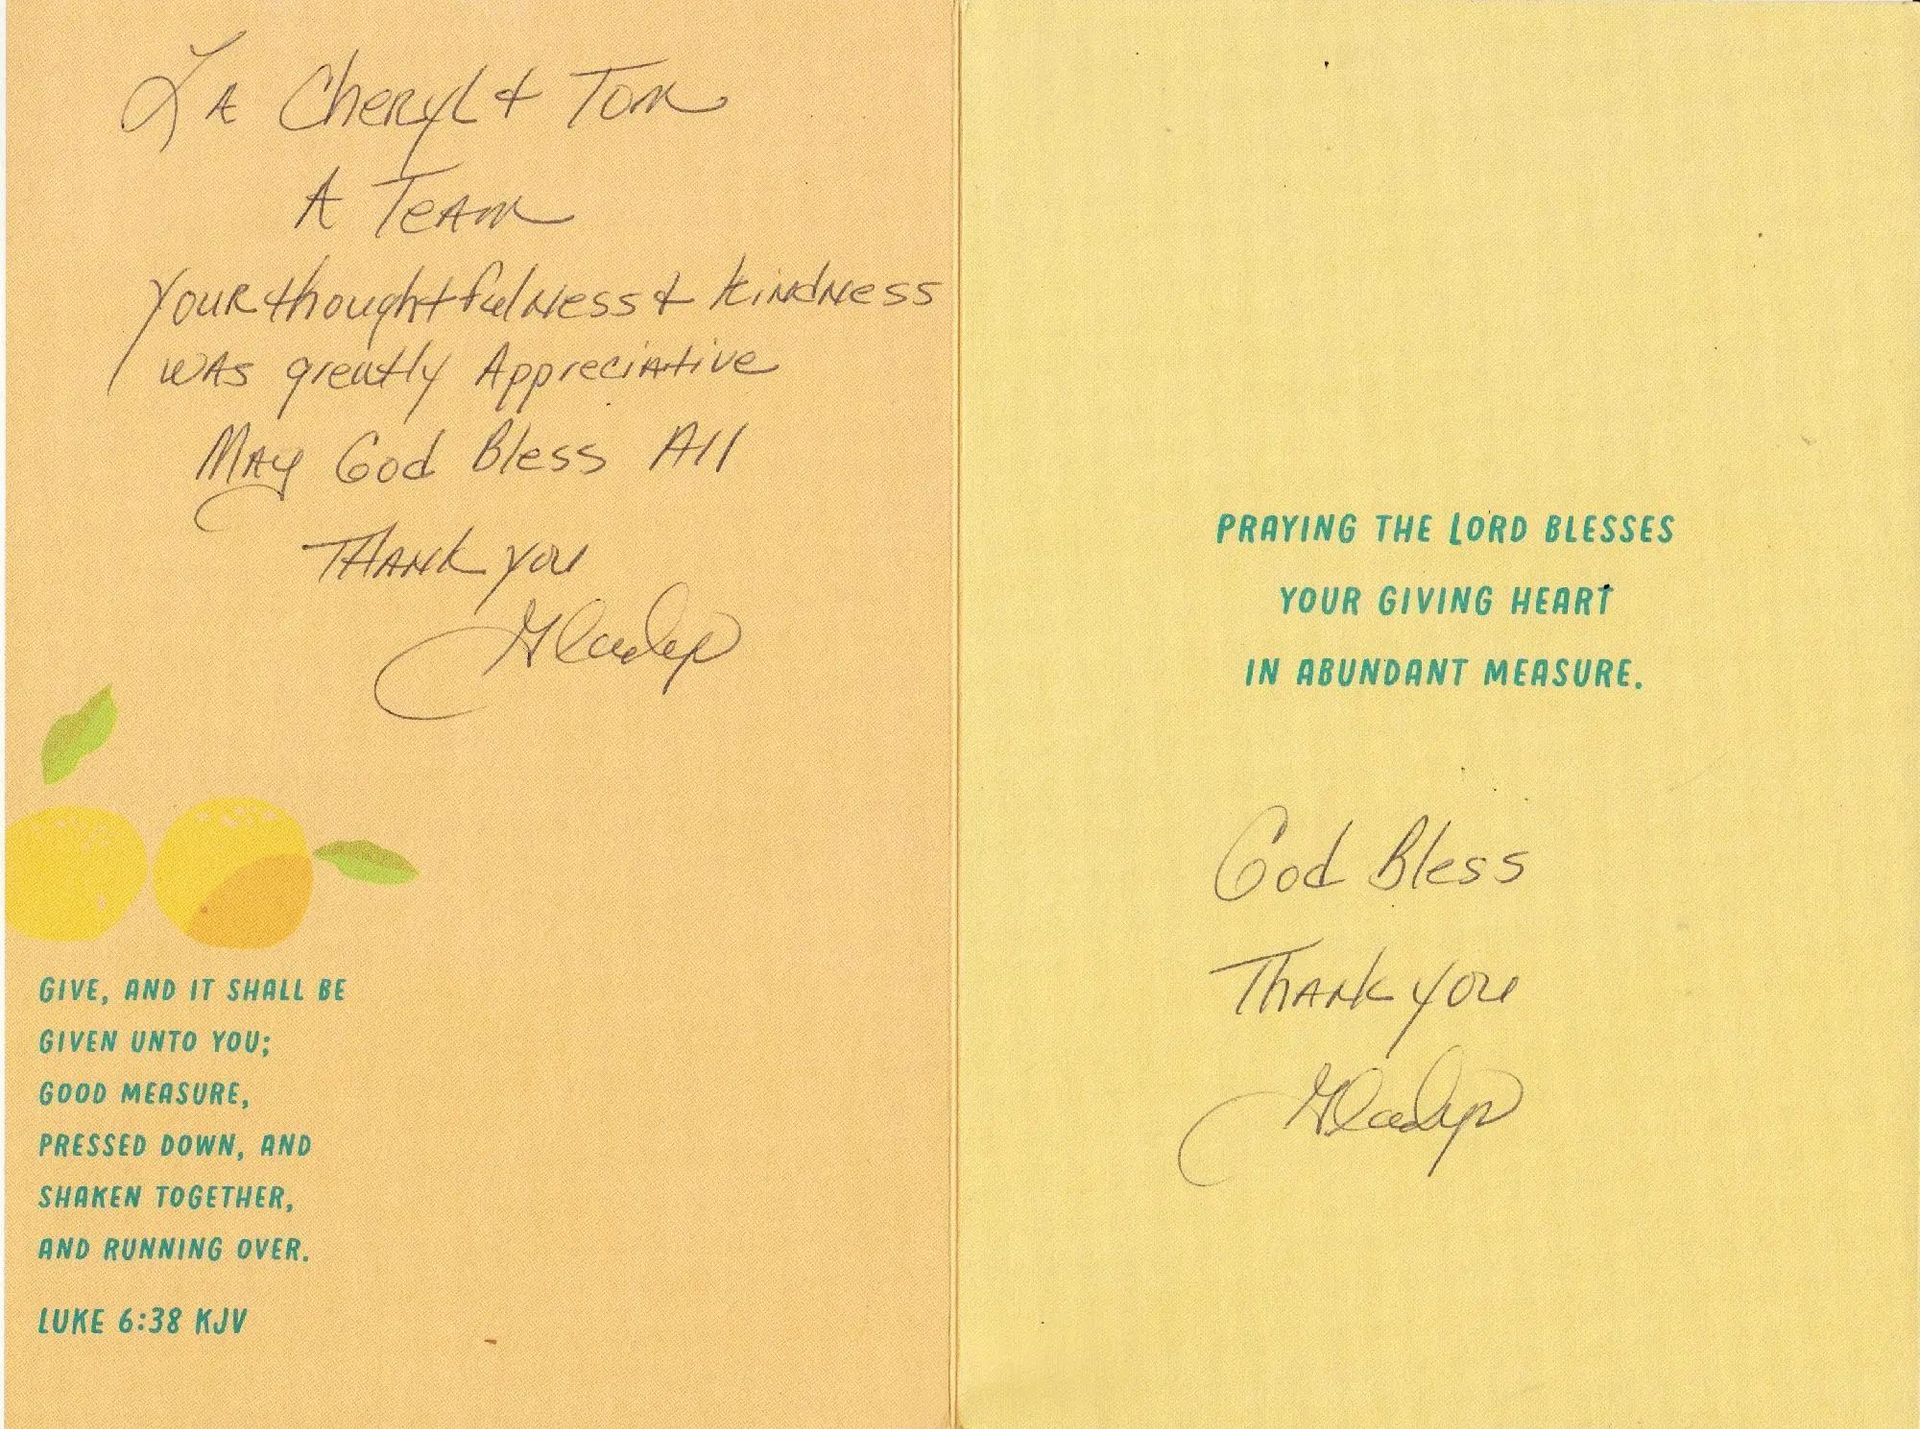 La Cheryl & Tom
A Team
Your thoughtfulness & kindness
was greatly Appreciative
May God Bless All
Thank you
Gladys
GIVE, AND IT SHALL BE
GIVEN UNTO YOU;
GOOD MEASURE,
PRESSED DOWN, AND
SHAKEN TOGETHER,
AND RUNNING OVER.
LUKE 6:38 KJV
PRAYING THE LORD BLESSES
YOUR GIVING HEART
IN ABUNDANT MEASURE.
God Bless
Thank you
Gladys